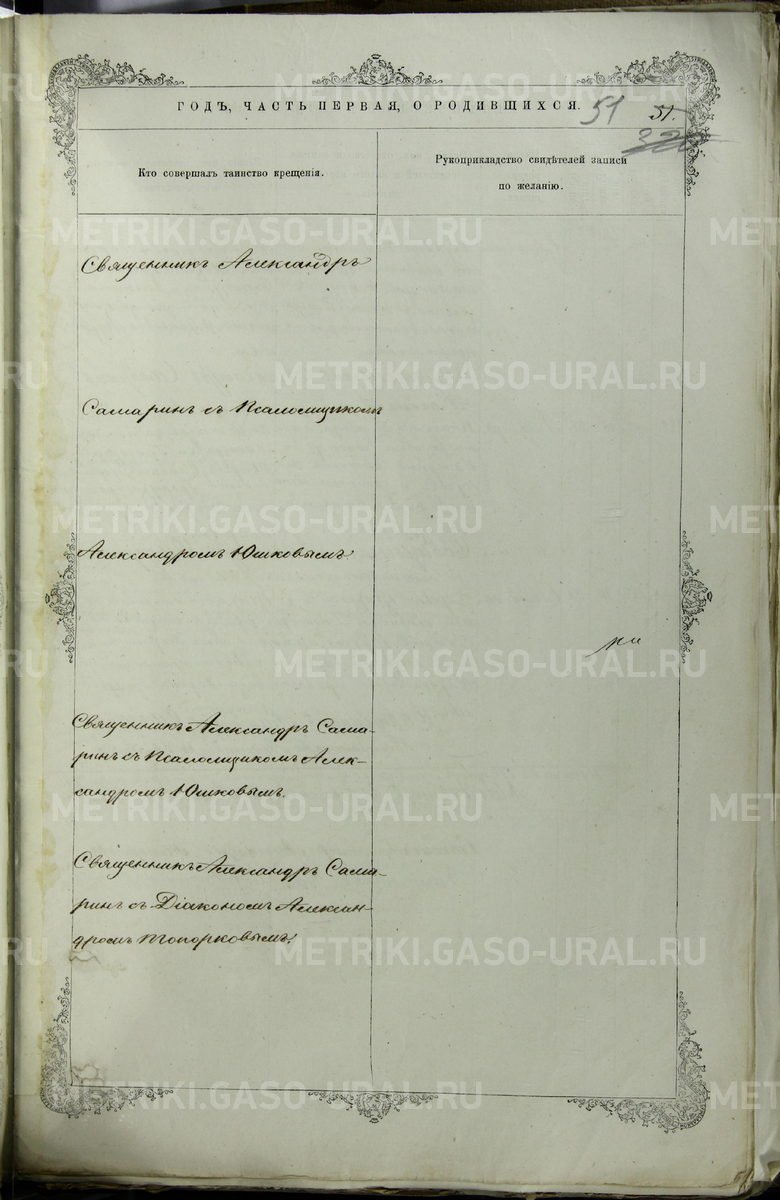 ГОДЪ, ЧАСТЬ ПЕРВАЯ, О РОДИВШИХСЯ.
51
51.
Кто совершалъ таинство крещенія.
Рукоприкладство свидѣтелей записи
по желанію.
Священникъ Александръ
Самаринъ съ Псаломщикомъ
Александромъ Юшковымъ.
Священникъ Александръ Сама-
ринъ съ Псаломщикомъ Алек-
сандромъ Юшковымъ.
Священникъ Александръ Сама-
ринъ съ Діакономъ Алексан-
дромъ Топорковымъ.
METRIKI.GASO-URAL.RU